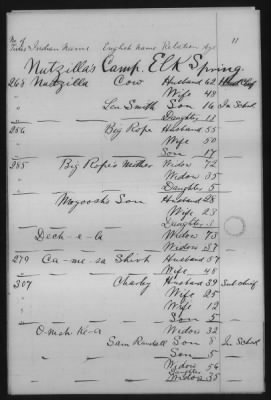 11
No of
Tickets Indian Name English Name Relation Age
Nutzilla's Camp. Elk Spring.
268 Nutzilla Cow Husband 62 Head Chief
" Wife 48
" Len Smith Son 16 In School
" Daughter 11
256 Big Rope Husband 55
" Wife 50
" Son 17
285 Big Rope's Mother Widow 72
Widow 35
Daughter 5
Mogoosh's Son Husband 28
Wife 23
Daughter
Dech-e-la Widow 73
" Widow 37
279 Ca-me-sa Shirt Husband 57
" Wife 48
307 Charley Husband 39 Sub chief
" Wife 25
" Wife 12
" Son 5
O-msh-Ke-a Widow 32
" Sam Randall Son 8 In School
" " Son 5
Widow 56
Widow 35